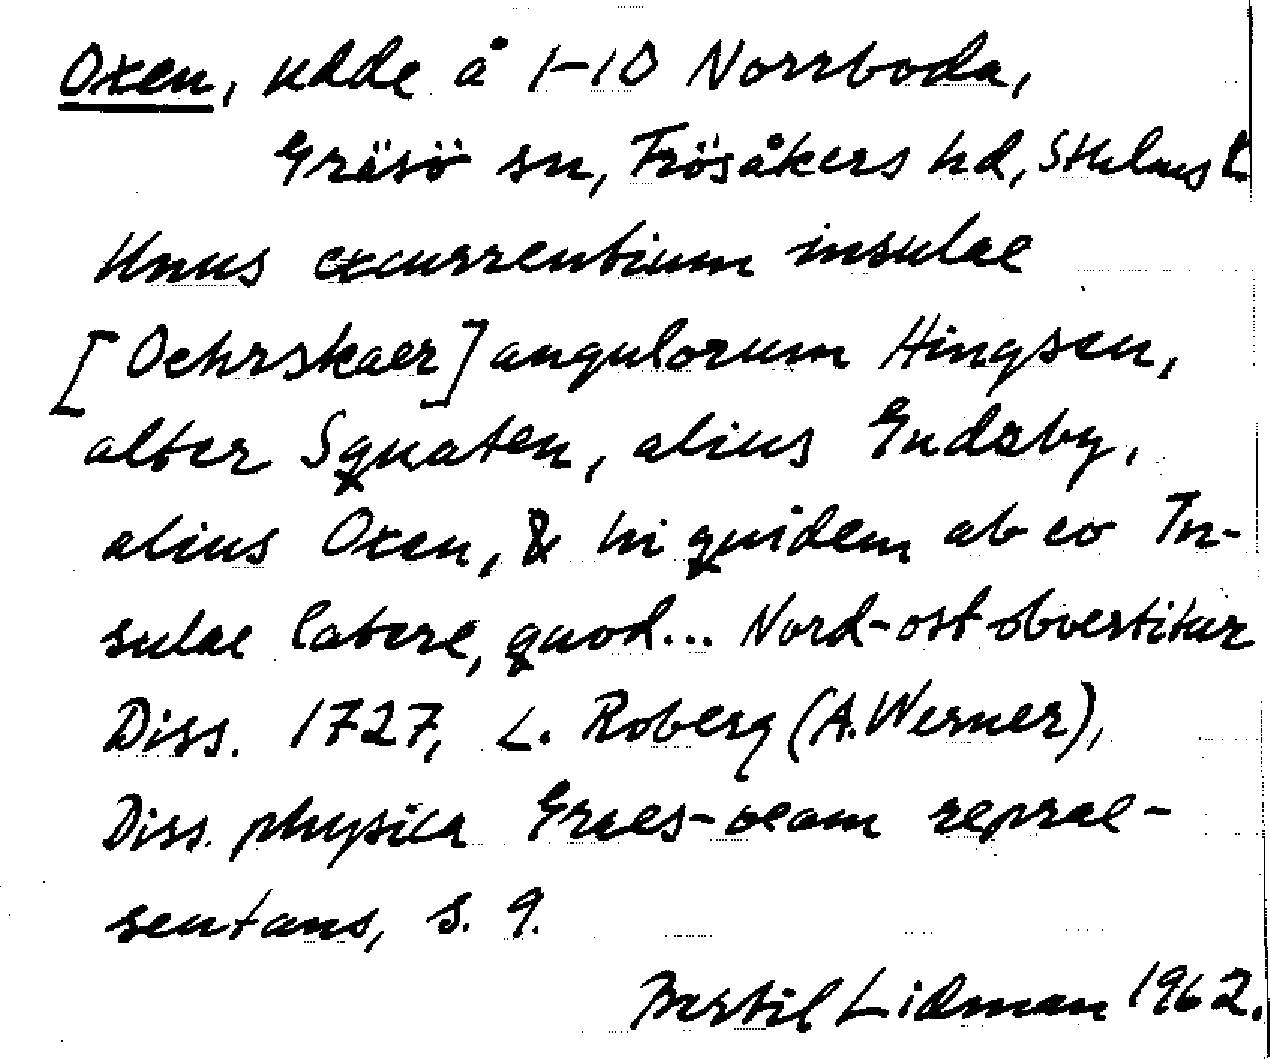 Oxen, udde å 1-10 Norrboda,
Gräsö sn, Frösåkers hd, Sthlms l.
Unus excurrentium insulae
[Oehrskaer] angulorum Hingsen,
alter Squaten, alius Gudzby,
alius Oxen, & hi quidem ab eo In-
sulae latere, quod... Nord-ost obvertitur
Diss. 1727, L. Roberg (A. Werner),
Diss. physica Graes-oeam reprae-
sentans, s. 9.
Bertil Lidman 1962.